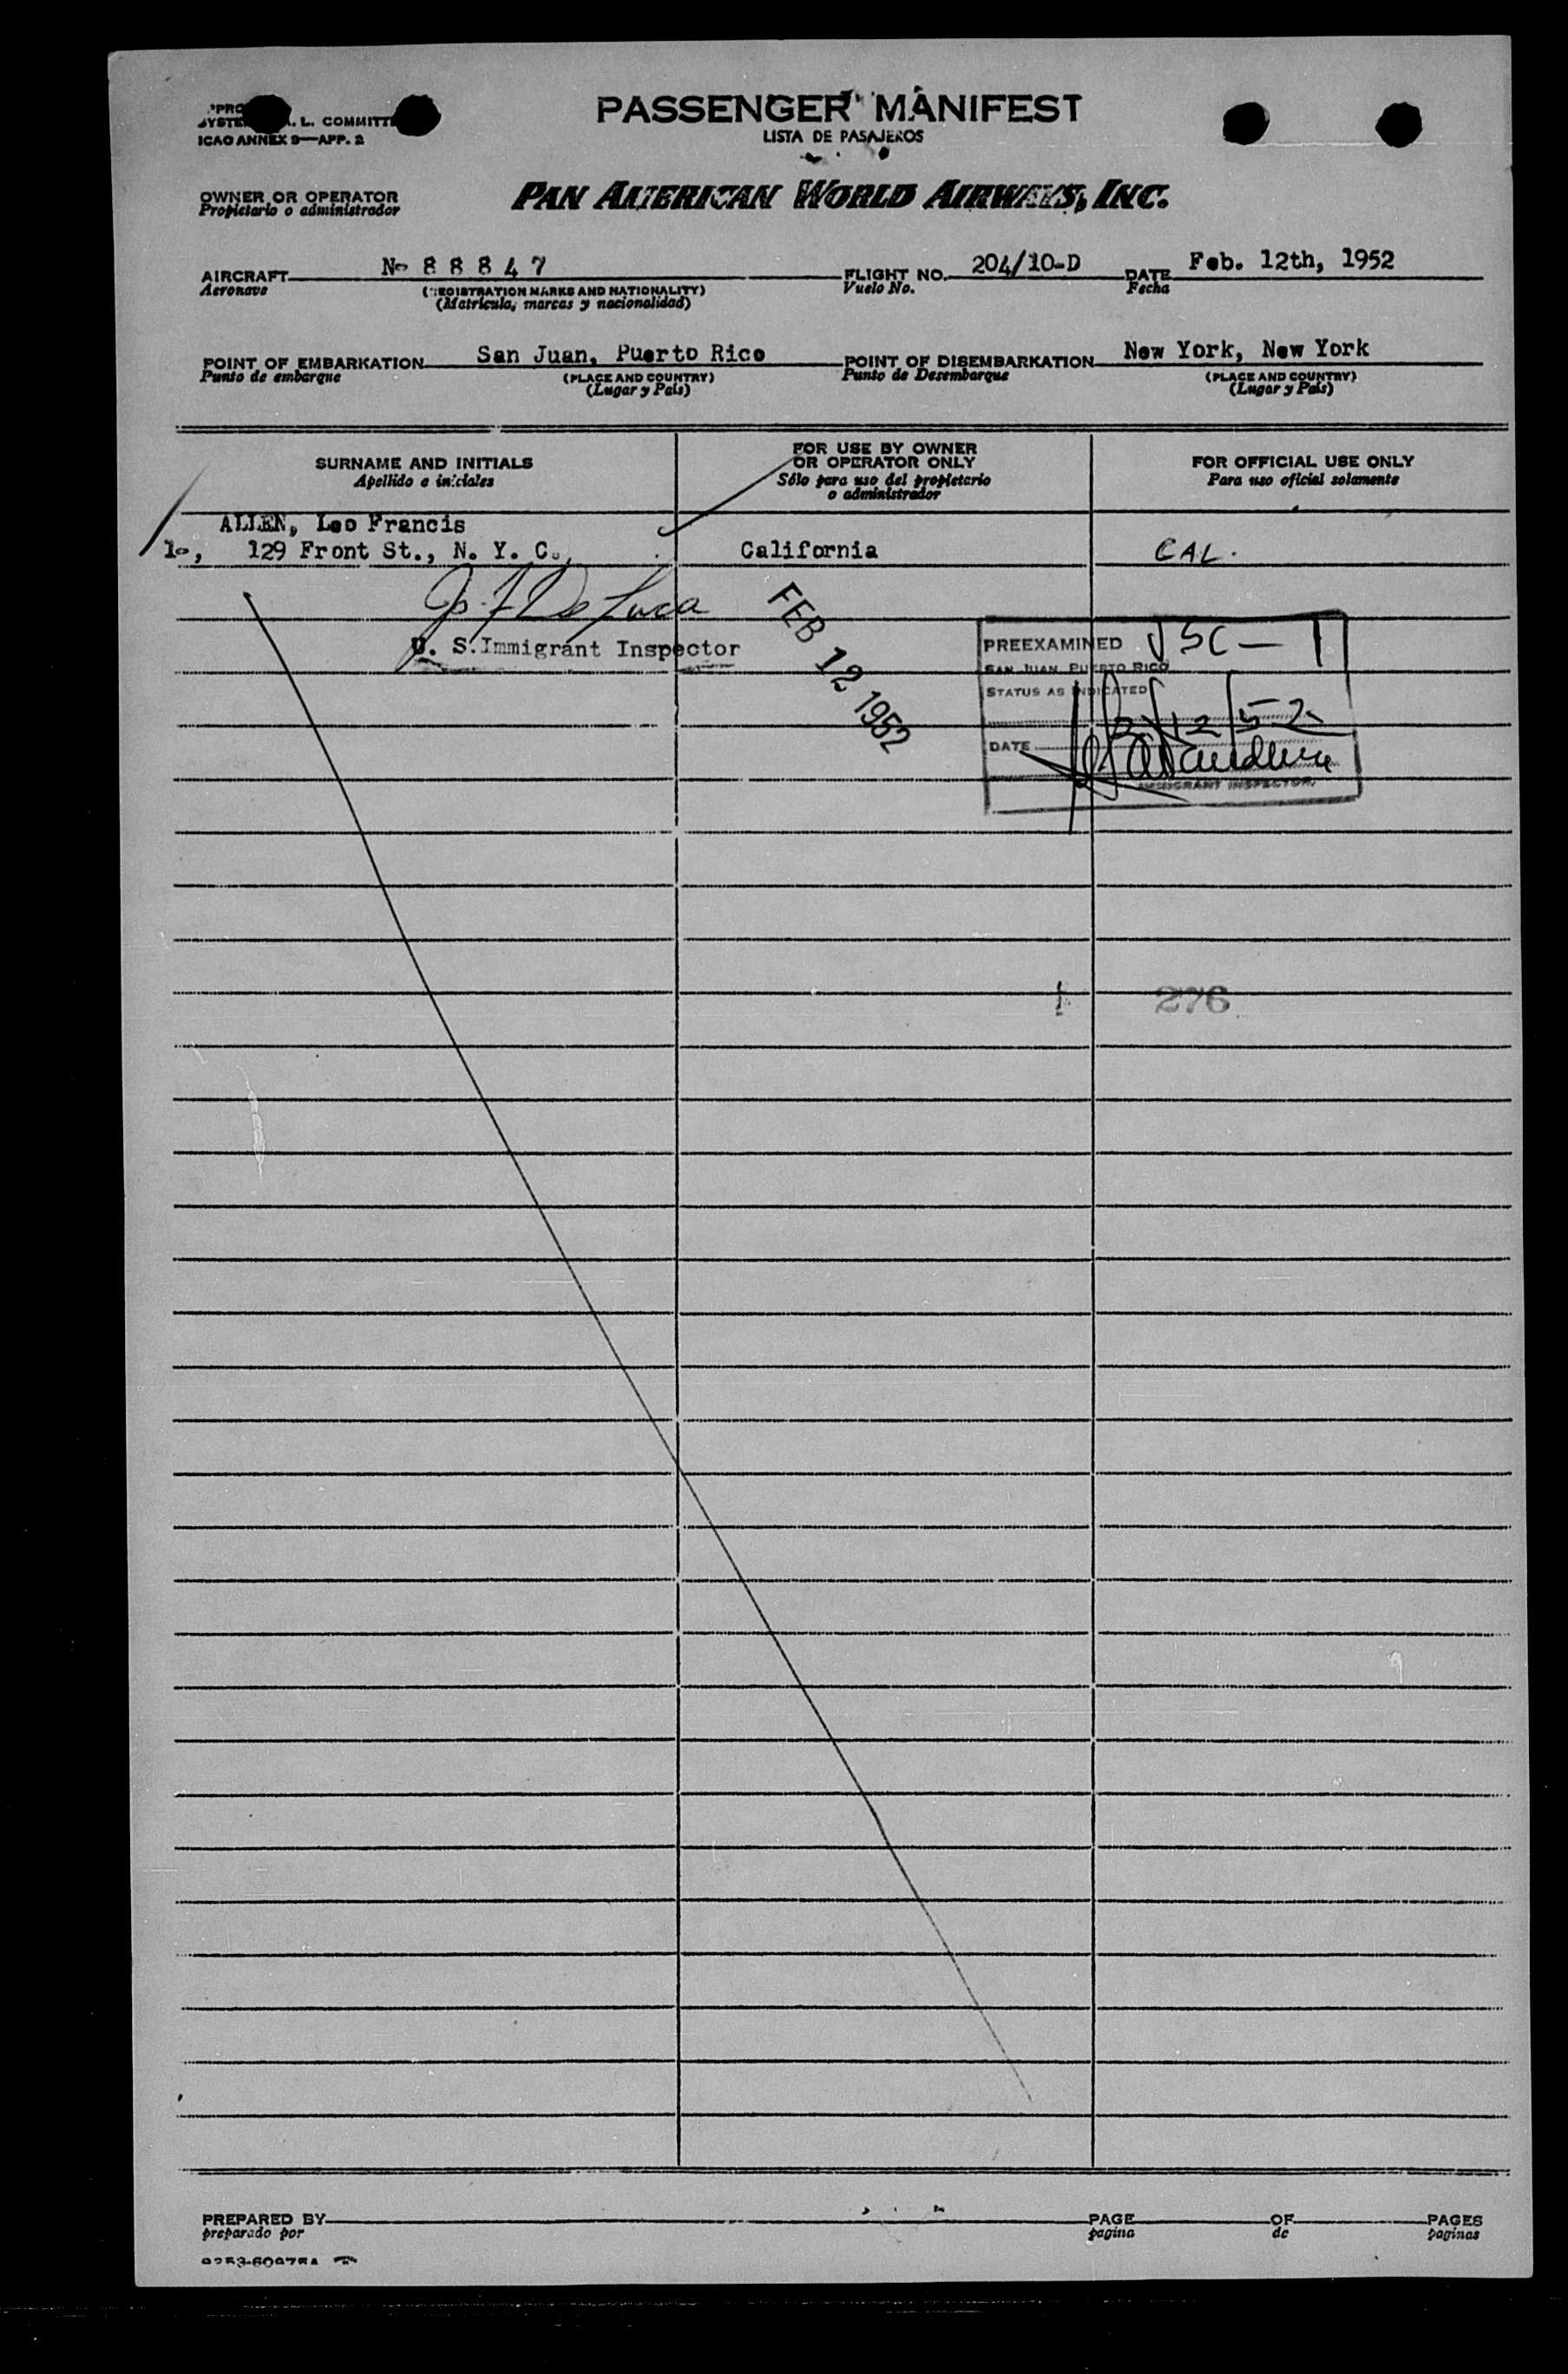 ICAO ANNEX 9—APP. 2
PASSENGER MANIFEST
LISTA DE PASAJEROS
OWNER OR OPERATOR
Propietario o administrador
PAN AMERICAN WORLD AIRWAYS, INC.
AIRCRAFT N- 8 8 8 4 7 FLIGHT NO. 204/10-D DATE Feb. 12th, 1952
Aeronave (REGISTRATION MARKS AND NATIONALITY) Vuelo No. Fecha
(Matrícula, marcas y nacionalidad)
POINT OF EMBARKATION San Juan, Puerto Rico POINT OF DISEMBARKATION New York, New York
Punto de embarque (PLACE AND COUNTRY) Punto de Desembarque (PLACE AND COUNTRY)
(Lugar y País) (Lugar y País)
SURNAME AND INITIALS
Apellido e iniciales
FOR USE BY OWNER
OR OPERATOR ONLY
Sólo para uso del propietario
o administrador
FOR OFFICIAL USE ONLY
Para uso oficial solamente
ALLEN, Leo Francis
1-, 129 Front St., N. Y. C., California CAL.
De Luca
U. S. Immigrant Inspector
FEB 12 1952
PREEXAMINED
SAN JUAN, PUERTO RICO
STATUS AS INDICATED
2/12/52
DATE
IMMIGRANT INSPECTOR.
276
PREPARED BY PAGE OF PAGES
preparado por pagina de paginas